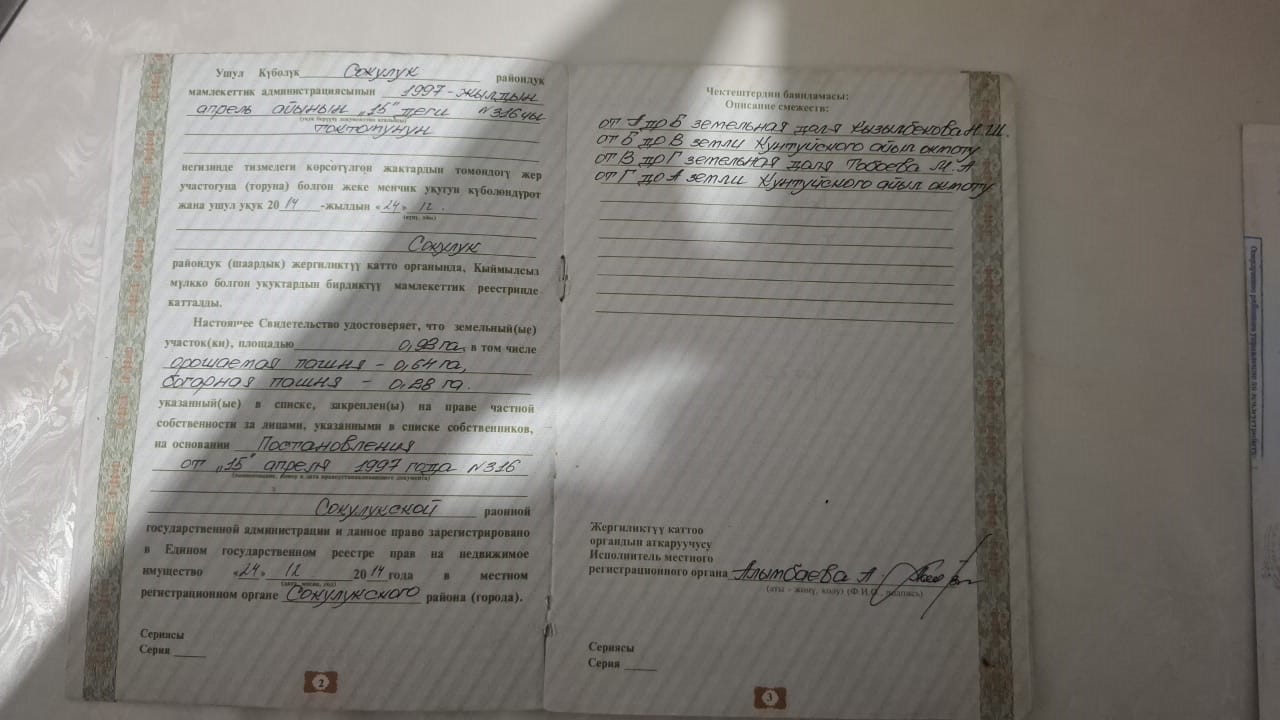 Ушул Күбөлүк Сокулук райондук
мамлекеттик администрациясынын 1997-жылдын
апрель айынын „15" деги №316чы
токтомунун
негизинде тизмедеги көрсөтүлгөн жактардын төмөндөгү жер
участогуна (торуна) болгон жеке менчик укугун күбөлөндүрөт
жана ушул укук 2014 -жылдын «24» 12.
Сокулук
райондук (шаардык) жергиликтүү катто органында, Кыймылсыз
мүлккө болгон укуктардын бирдиктүү мамлекеттик реестринде
катталды.
Настоящее Свидетельство удостоверяет, что земельный(ые)
участок(ки), площадью 0,92 га, в том числе
орошаемая пашня - 0,64 га,
богарная пашня - 0,28 га.
указанный(ые) в списке, закреплен(ы) на праве частной
собственности за лицами, указанными в списке собственников,
на основании Постановления
от „15" апреля 1997 года №316
(наименование, номер и дата правоустанавливающего документа)
Сокулукской районной
государственной администрации и данное право зарегистрировано
в Едином государственном реестре прав на недвижимое
имущество «24» 12 2014 года в местном
(число, месяц, год)
регистрационном органе Сокулукского района (города).
Сериясы
Серия
2
Чектештердин баяндамасы:
Описание смежеств:
от А до Б земельная доля Кызылбекова Н.Ш.
от Б до В земли Кунтуйского айыл окмоту
от В до Г земельная доля Тобоева М.А
от Г до А земли Кунтуйского айыл окмоту
Жергиликтүү каттоо
органдын аткаруучусу
Исполнитель местного
регистрационного органа Алымбаева А
(аты - жөнү, колу) (Ф.И.О., подпись)
Сериясы
Серия
3